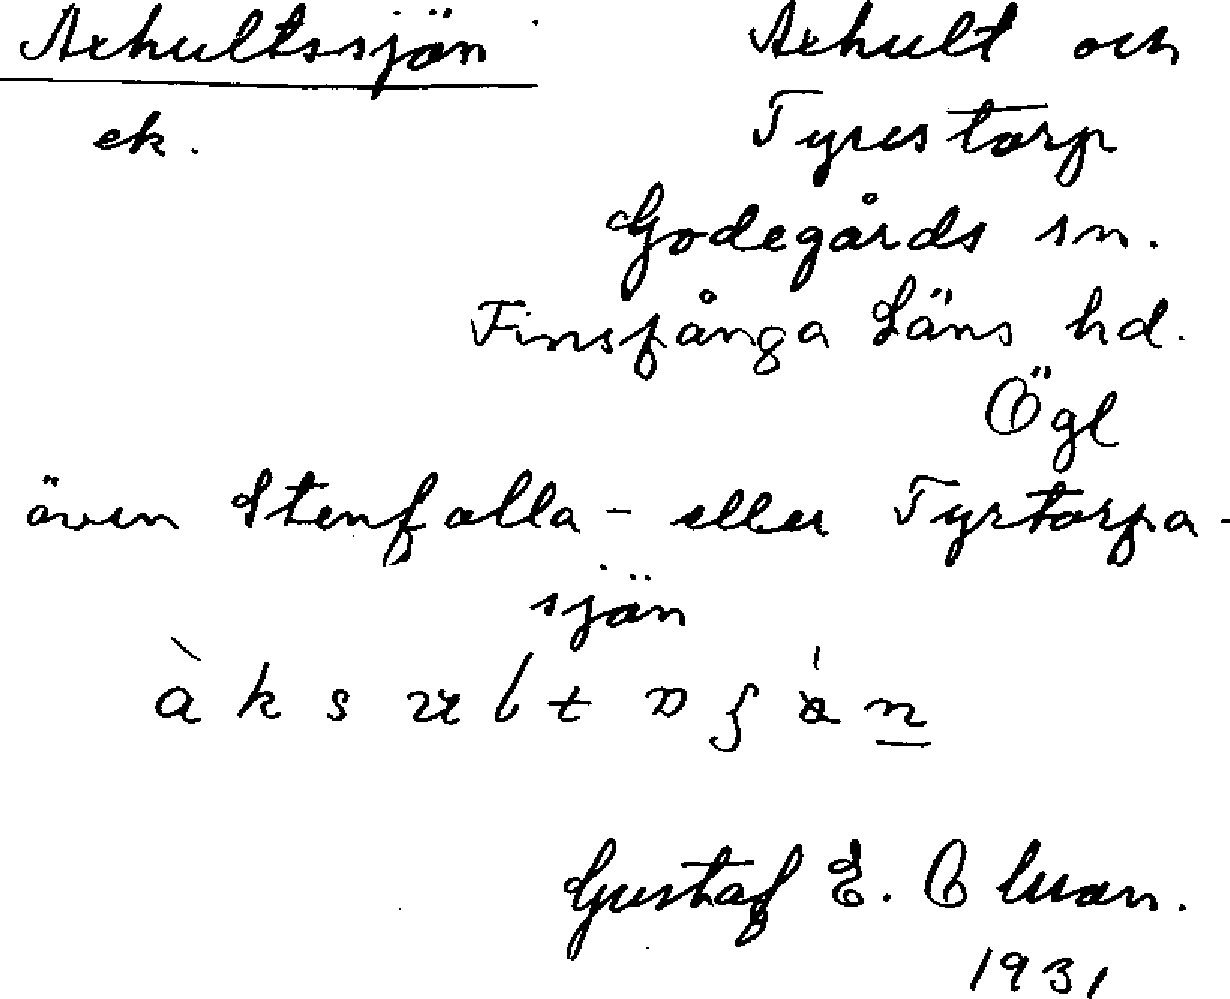 Axhultssjön Axhult och
ek. Tyrestorp
Godegårds sn.
Finspånga Läns hd.
Ögl
även Stenfalla- eller Tyrtorpa-
sjön
Gustaf E.
1931